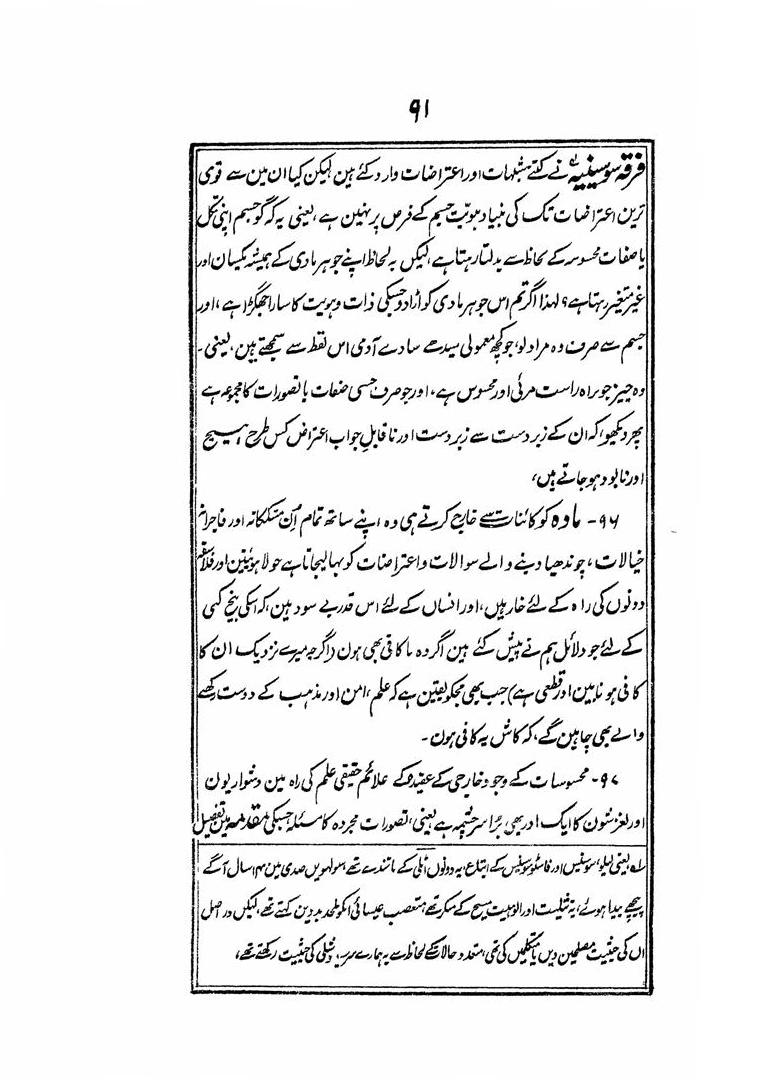 ۹۱
فرقہ سوسینیہ نے کتنے شبہات اور اعتراضات وارد کئے ہین لیکن کیا ان مین سے قوی
ترین اعتراضات تک کی بنیاد ہویّت جسم کے فرض پر نہین ہے، یعنی یہ کہ گو جسم اپنی شکل
یا صفات محسوسہ کے لحاظ سے بدلتا رہتا ہے، لیکن بہ لحاظ اپنے جوہر مادی کے ہمیشہ یکسان اور
غیر متغیر رہتا ہے؟ لہذا اگر تم اس جوہر مادی کو اڑا دو جسکی ذات و ہویت کا سارا جھگڑا ہے، اور
جسم سے صرف وہ مراد لو، جو کچھ معمولی سیدھے سادے آدمی اس لفظ سے سمجھتے ہین، یعنی۔
وہ چیز جو براہ راست مرئی اور محسوس ہے، اور جو صرف حسی صفات یا تصورات کا مجموعہ ہے
پھر دیکھو، کہ ان کے زبردست سے زبردست اور ناقابلِ جواب اعتراض کس طرح ہیچ
اور نابود ہو جاتے ہیں،
۹۶- مادہ کو کائنات سے خارج کرتے ہی وہ اپنے ساتھ تمام اُن متشککانہ اور فاجرانہ
خیالات، چوندھیا دینے والے سوالات و اعتراضات کو بہا لیجاتا ہے جو لاہوتیین اور فلاسفہ
دونوں کی راہ کے لئے خار ہیں، اور انسان کے لئے اس قدر بے سود ہین، کہ اسکی بیخ کنی
کے لئے جو دلائل ہم نے پیش کئے ہین اگر وہ ناکافی بھی ہون (اگرچہ میرے نزدیک ان کا
کافی ہونا بین اور قطعی ہے) جب بھی مجکو یقین ہے کہ علم، امن اور مذہب کے دوست رکھنے
والے بھی چاہین گے، کہ کاش یہ کافی ہون۔
۹۷- محسوسات کے وجود خارجی کے عقیدہ کے علائم حقیقی علم کی راہ مین دشواریون
اور لغزشون کا ایک اور بھی بڑا سرچشمہ ہے یعنی، تصورات مجردہ کا مسئلہ جسکی مقدمہ مین تفصیل
لہ یعنی لیلو، سوسنیس اور فاسٹوسوسنیس کے اتباع، یہ دونوں اٹلی کے باشندے تھے، سولھویں صدی مین ۱۴ سال آگے
پیچھے پیدا ہوئے، یہ تثلیث اور الوہیت مسیح کے منکر تھے، متعصب عیسائی انکو ملحد بد دین کہتے تھے، لیکن در اصل
ان کی حیثیت مصلحین دیں یا متکلمیں کی تھی، متعدد حالات کے لحاظ سے یہ ہمارے سرسید و شبلی کی حیثیت رکھتے تھے،